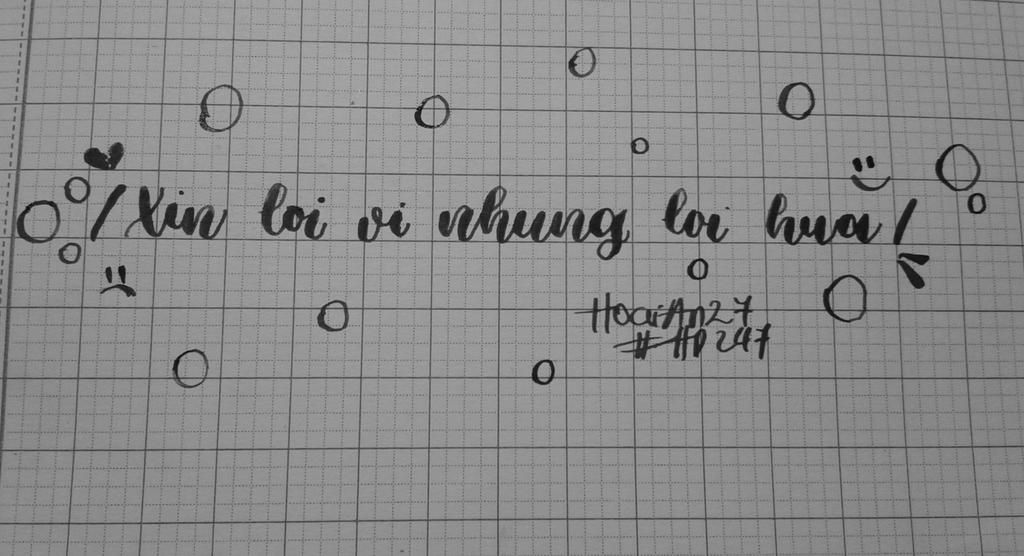 /Xin loi vi nhung loi hua/
HoaiAn27
#HD247